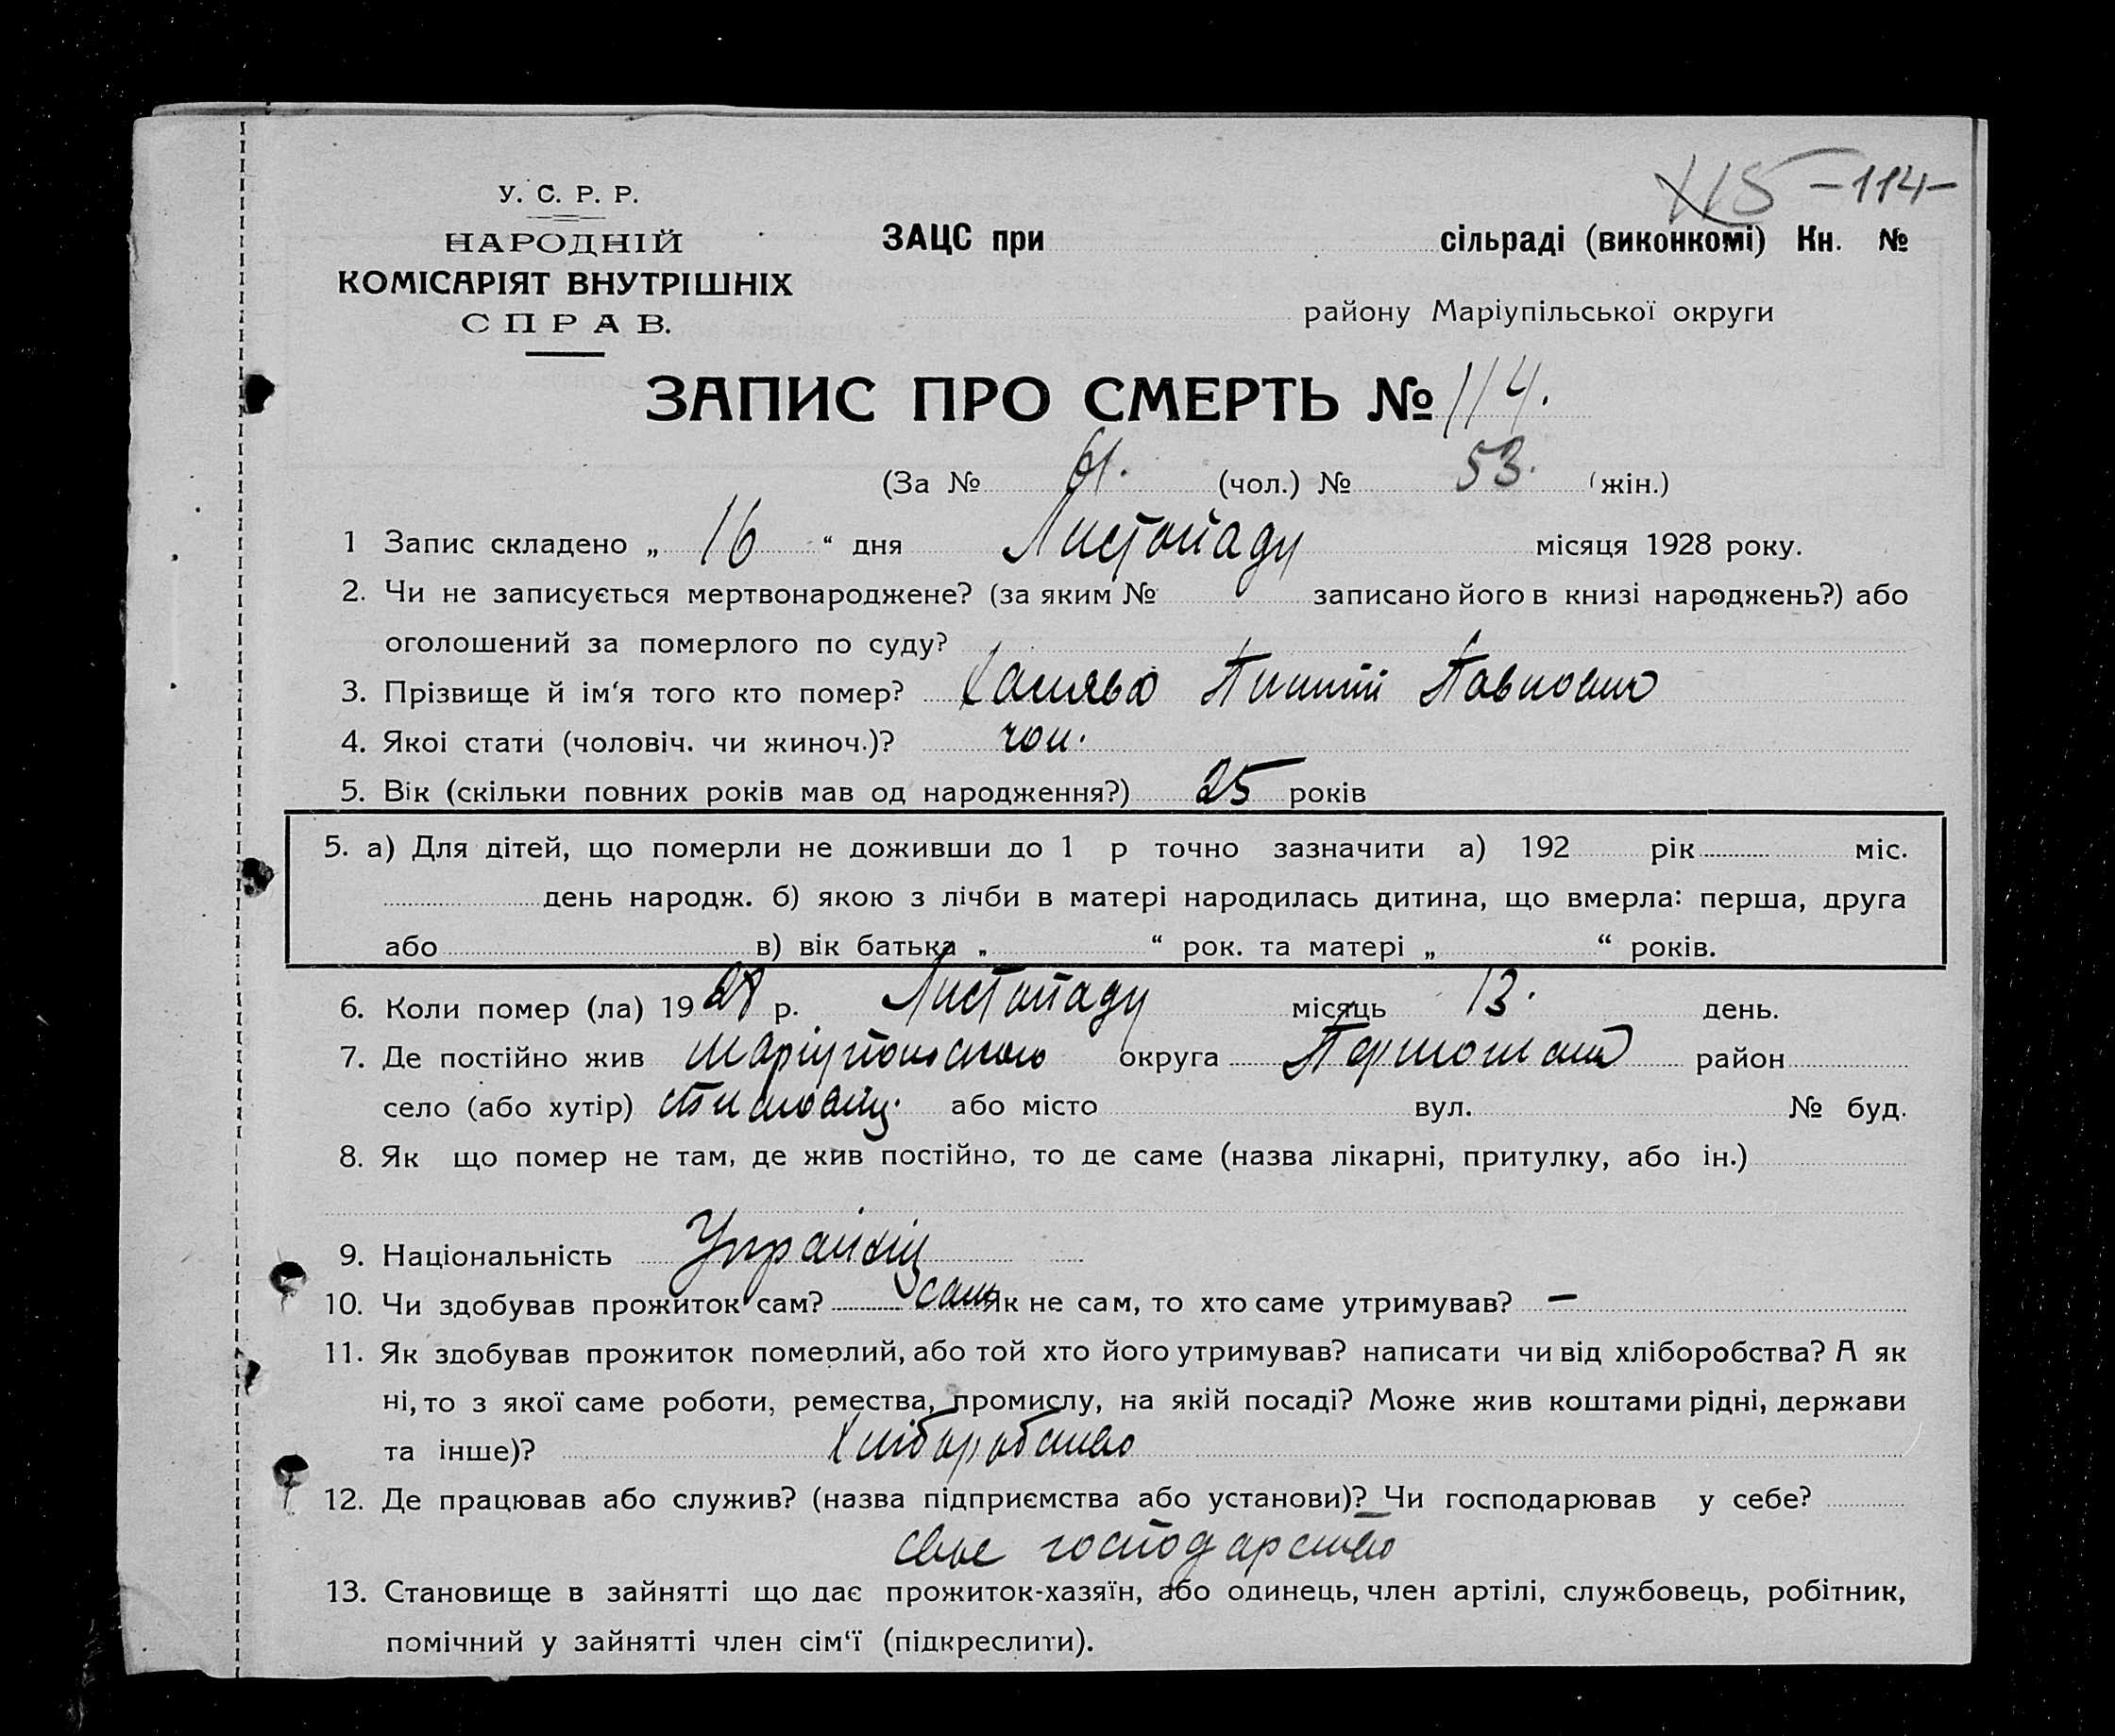 115 -114-
У. С. Р. Р.
НАРОДНІЙ
КОМІСАРІЯТ ВНУТРІШНІХ
СПРАВ.
ЗАЦС при сільраді (виконкомі) Кн. №
району Маріупільської округи
ЗАПИС ПРО СМЕРТЬ № 114.
(За № 61. (чол.) № 53. (жін.)
1 Запис складено „ 16 “ дня Листопаду місяця 1928 року.
2. Чи не записується мертвонароджене? (за яким № записано його в книзі народжень?) або
оголошений за померлого по суду?
3. Прізвище й ім‘я того кто помер? Павлович
4. Якоі стати (чоловіч. чи жиноч.)? чол.
5. Вік (скільки повних років мав од народження?) 25 років
5. а) Для дітей, що померли не доживши до 1 р точно зазначити а) 192 рік міс.
день народж. б) якою з лічби в матері народилась дитина, що вмерла: перша, друга
або в) вік батька „ “ рок. та матері „ “ років.
6. Коли помер (ла) 1928 р. Листопаду місяць 13. день.
7. Де постійно жив округа район
село (або хутір) або місто вул. № буд.
8. Як що помер не там, де жив постійно, то де саме (назва лікарні, притулку, або ін.)
9. Національність Українец
10. Чи здобував прожиток сам? сам Як не сам, то хто саме утримував? —
11. Як здобував прожиток померлий, або той хто його утримував? написати чи від хліборобства? А як
ні, то з якої саме роботи, ремества, промислу, на якій посаді? Може жив коштами рідні, держави
та інше)? Хліборобство
12. Де працював або служив? (назва підприємства або установи)? Чи господарював у себе?
своє господарство
13. Становище в зайнятті що дає прожиток-хазяїн, або одинець, член артілі, службовець, робітник,
помічний у зайнятті член сім‘ї (підкреслити).